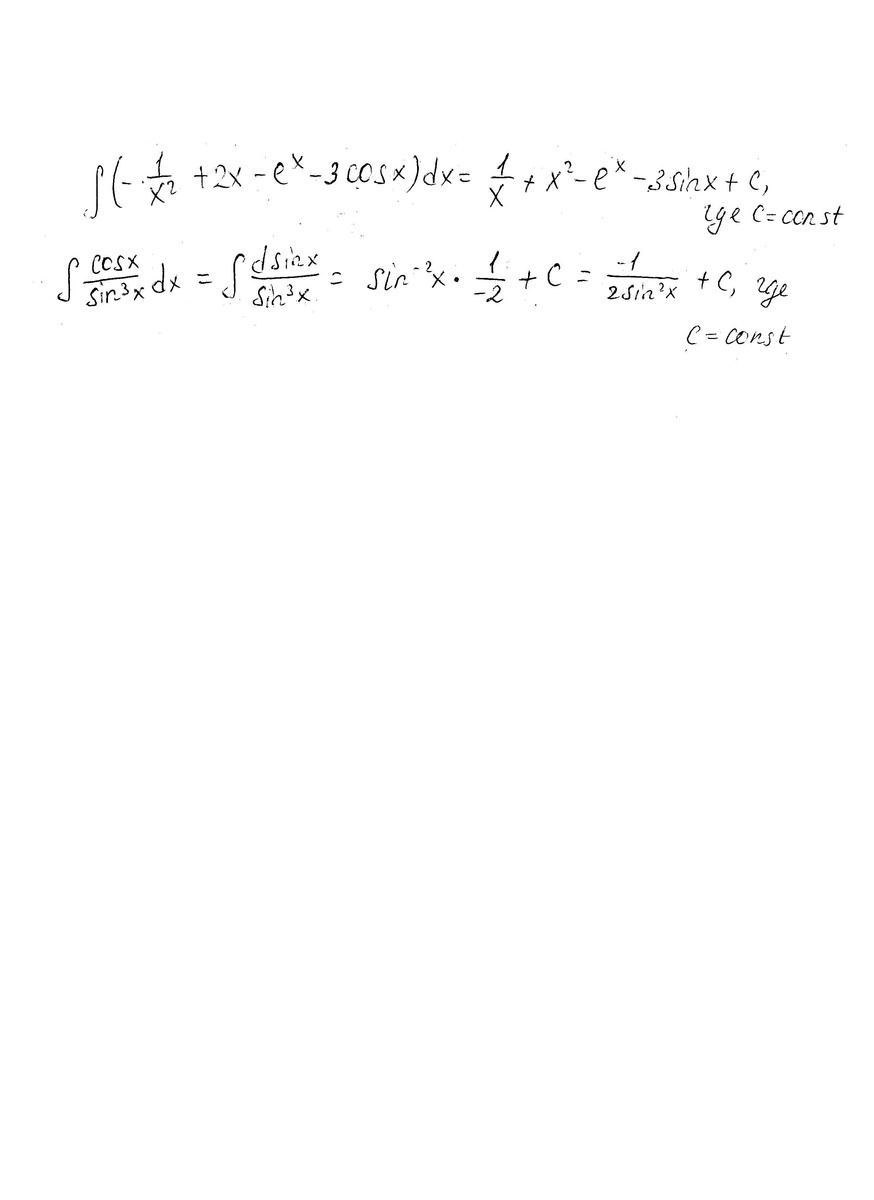 ∫(-1/x² + 2x - eˣ - 3 cosx)dx = 1/x + x² - eˣ - 3sinx + C,
где C = const
∫ cosx/sin³x dx = ∫ dsinx/sin³x = sin⁻²x · 1/-2 + C = -1/2sin²x + C, где
C = const